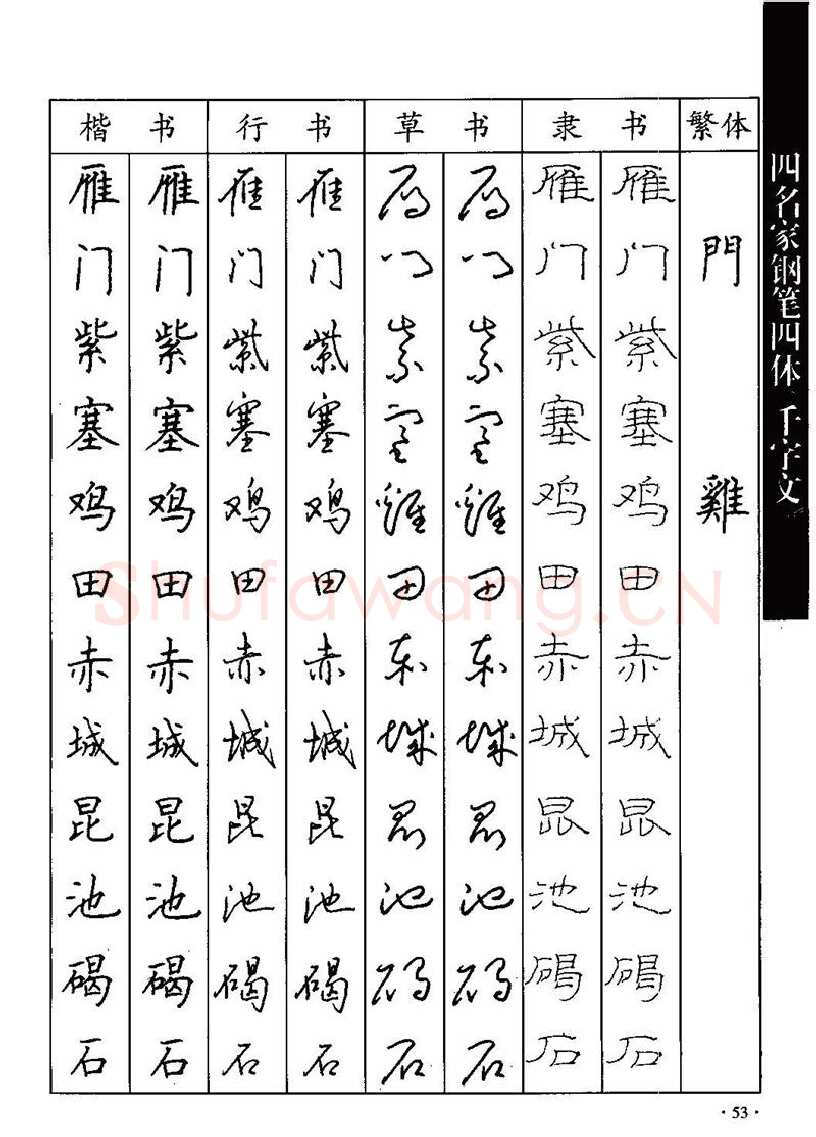 楷书 行书 草书 隶书 繁体
雁 雁 雁 雁 雁 雁 雁 雁
门 门 门 门 门 门 门 门 門
紫 紫 紫 紫 紫 紫 紫 紫
塞 塞 塞 塞 塞 塞 塞 塞
鸡 鸡 鸡 鸡 雞 雞 鸡 鸡 雞
田 田 田 田 田 田 田 田
赤 赤 赤 赤 赤 赤 赤 赤
城 城 城 城 城 城 城 城
昆 昆 昆 昆 昆 昆 昆 昆
池 池 池 池 池 池 池 池
碣 碣 碣 碣 碣 碣 碣 碣
石 石 石 石 石 石 石 石
四名家钢笔四体 千字文
Shufawang.CN
·53·